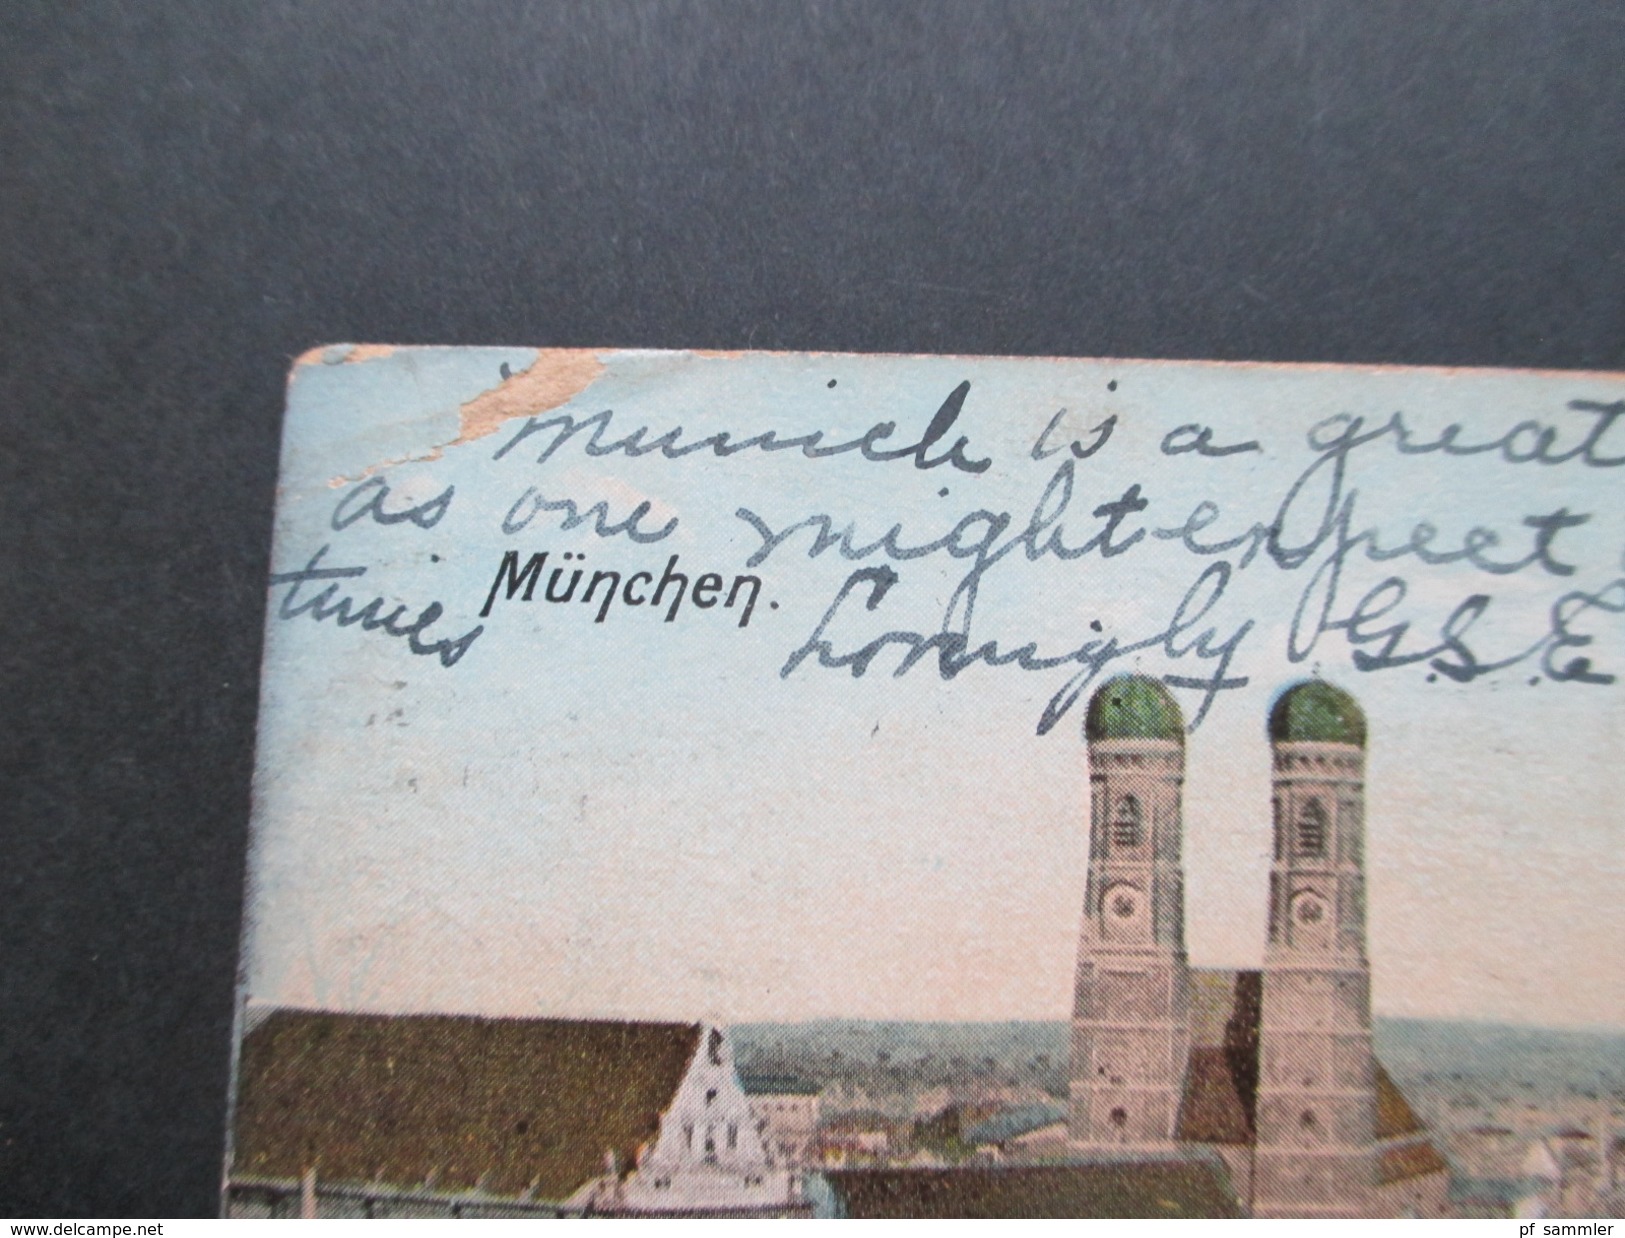 Munich is a great
as one might expect
times
München.
Lovingly G.S.E.
delcampe.net
pf_sammler